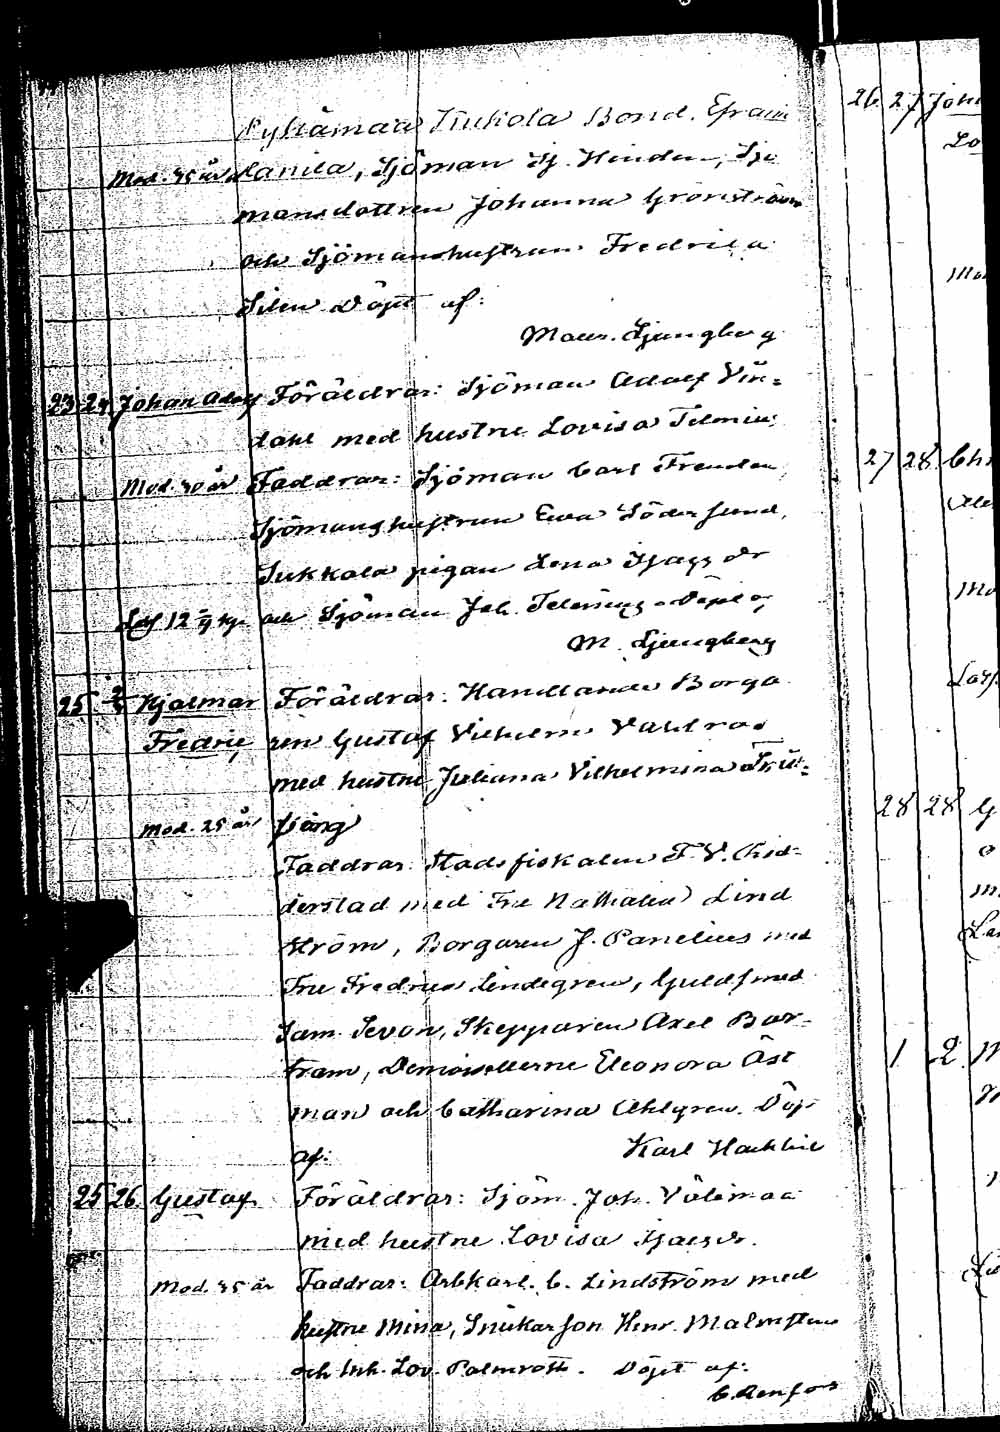 Pyhämaa Kukola Bond. Efraim
Mod. 35 år Lanila, Sjöman Sj. Hinder, Sjö
mansdottren Johanna Grönström
och Sjömanshustrun Fredrica
Silen Döpt af:
Maur. Ljungberg
23 24 Johan Adolf Föräldrar: Sjöman Adolf Vin=
dahl med hustru Lovisa Telenius
Mod. 30 år Faddrar: Sjöman Carl Freuden
Sjömanshustrun Eva Söderlund,
Sukkala pigan Lena Isaqs dr
12 och Sjöman Joh. Telenius Döpt af
M. Ljungberg
25 Hjalmar Föräldrar: Handlande Borga
Fredric ren Gustaf Vilhelm Vahlroos
med hustru Juliana Vilhelmina
Mod. 25 år
Faddrar: Stadsfiskalen F. V. Chid=
derstad med Fru Nathalia Lind
ström, Borgaren J. Panelius med
Fru Fredrica Lindegren, Guldsmed
Sam. Sevon, Skepparen Axel Bar=
tram, Demoisellerne Eleonora Öst
man och Catharina Ahlgren. Döpt
af: Karl Hacklin
25 26 Gustaf Föräldrar: Sjöm. Joh. Välimaa
med hustru Lovisa Isacsdr.
Mod. 35 år Faddrar: Arbkarl. C. Lindström med
hustru Mina, Snickarson Henr. Malmsten
och Inh. Lov. Palmroth. Döpt af:
C. Renfors
26 27 Joh
27 28 Ch
28 28 G
1 2 M